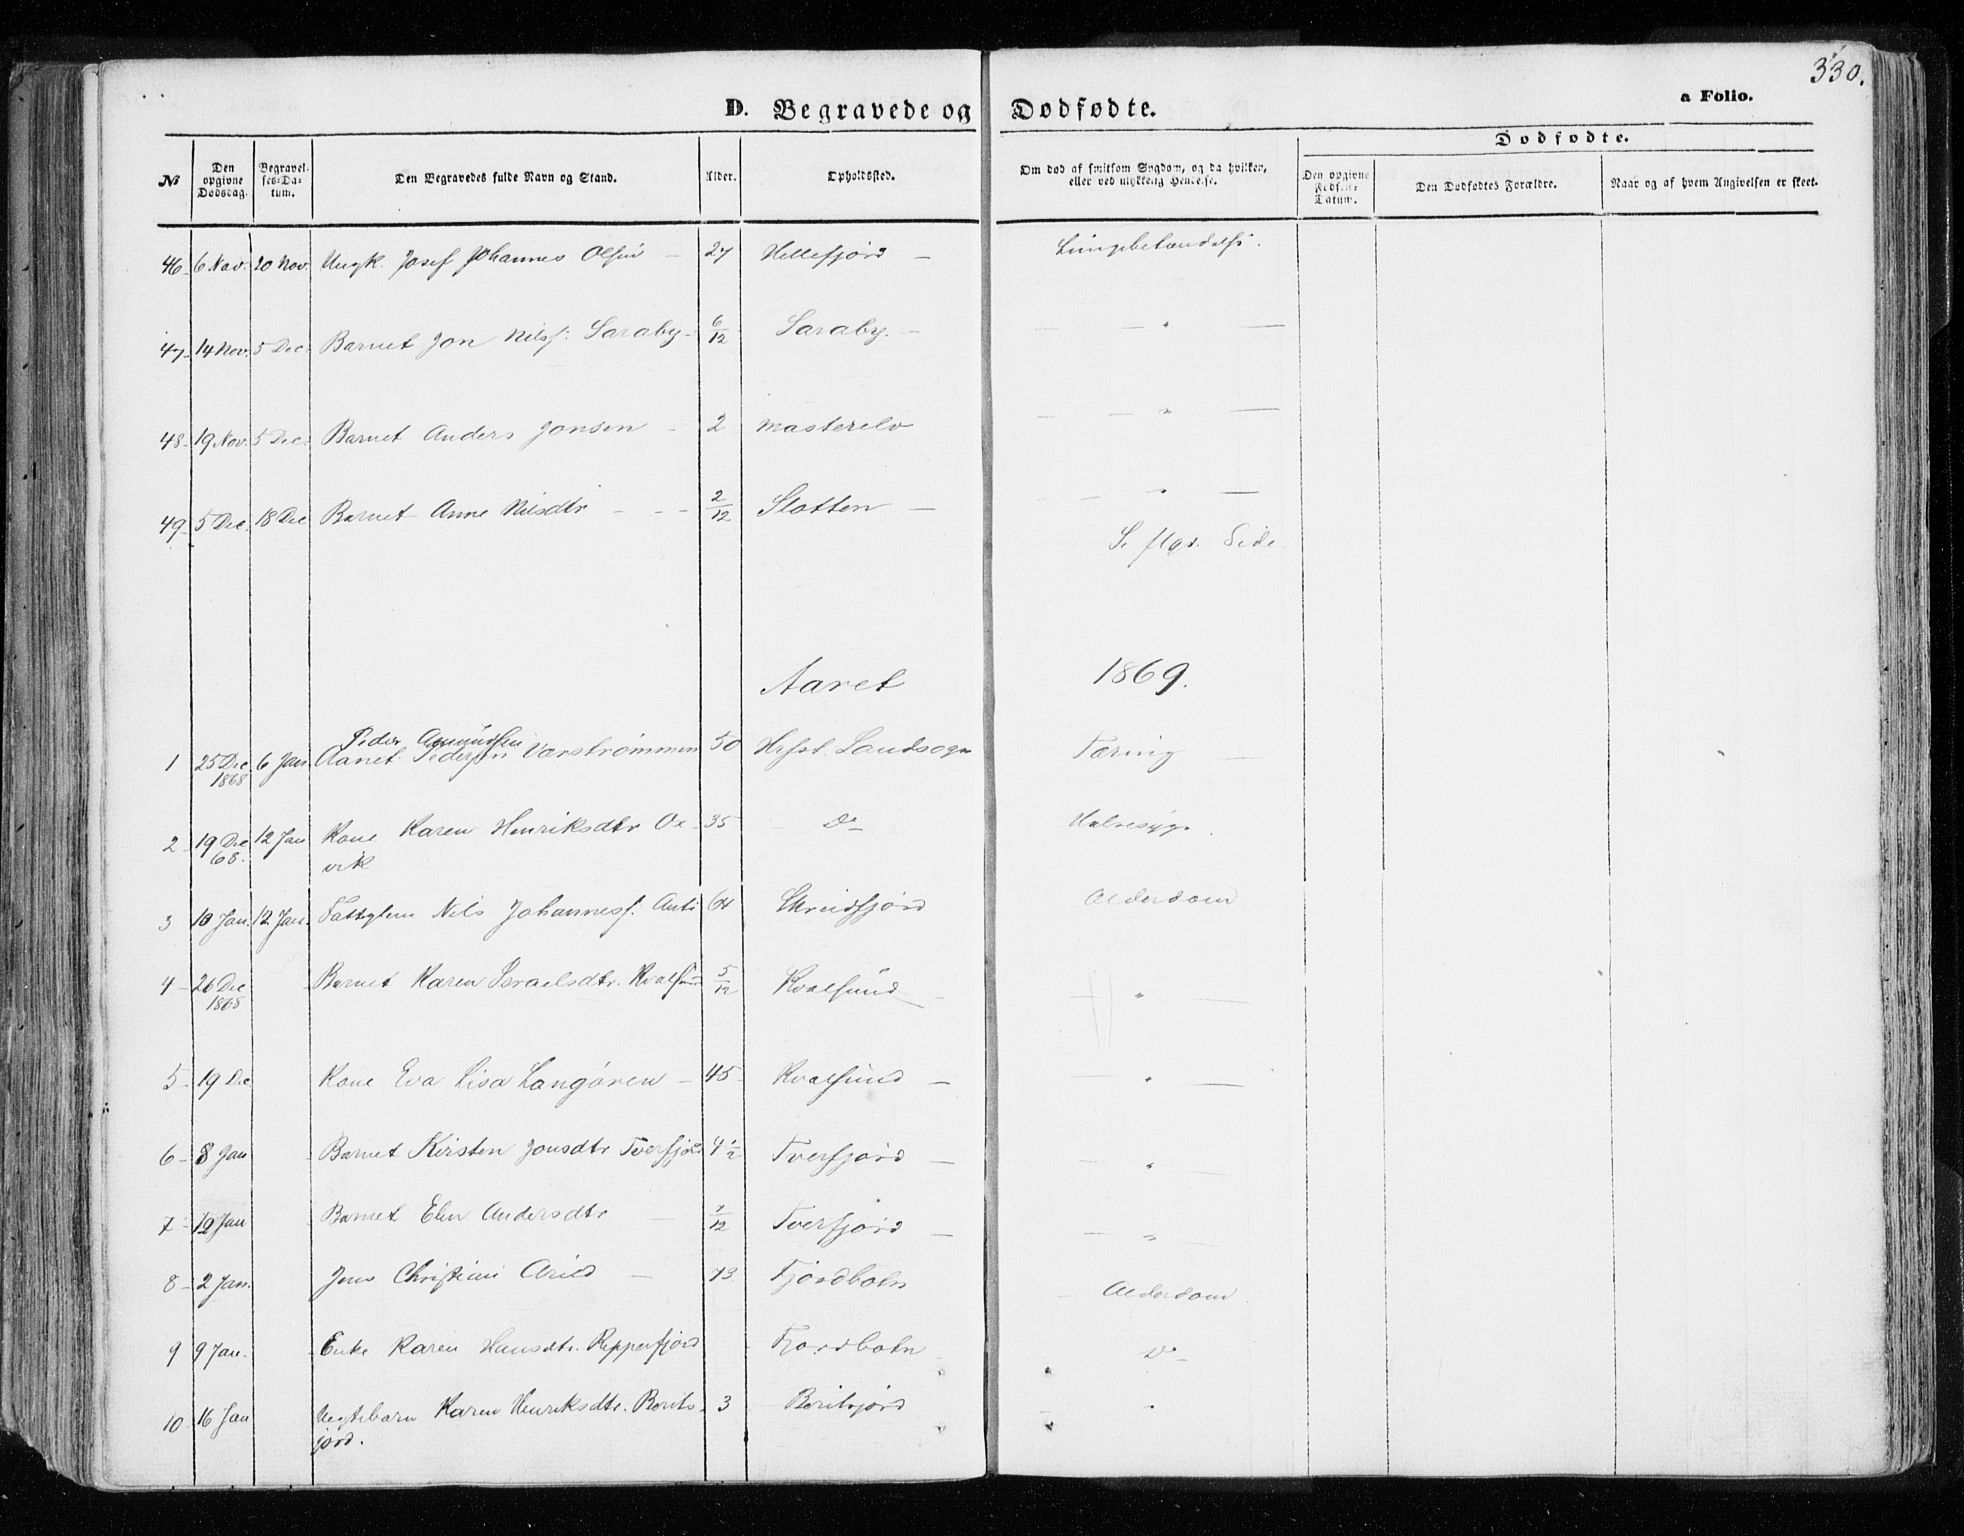 330.
D. Begravede og Dødfødte.
a Folio.
Dødfødte.
No
Den opgivne Dødsdag.
Begravelses-Datum.
Den Begravedes fulde Navn og Stand.
Alder.
Opholdssted.
Om død af smitsom Sygdom, og da hvilken, eller ved ulykkelig Hendelse.
Den opgivne Fødsels-Datum.
Den Dødfødtes Forældre.
Naar og af hvem Angivelsen er skeet.
46 - 6 Nov. 20 Nov. Ungk. Josef Johannes Olsen - 27 Hellefjord - Lungebetændelse.
47 - 14 Nov. 5 Dec. Barnet Jon Nilss. Saraby - 6/12 Saraby. - — " —
48 - 19 Nov. 5 Dec. Barnet Anders Jonsen - 2 Masterelv — " —
49 - 5 Dec. 18 Dec Barnet Anne Nilsdtr - - - 2/12 Slotten - — " —
S. flgd. Side
Aaret 1869.
Peder Amundsen
1 25 Dec 6 Jan Pedersen Værstrømmen 50 Hfst. Landsogn Tæring -
1868
2 - 19 Dec 12 Jan Kone Karen Henriksdtr Ox- 35 Do Halsesyge.
68. vik
3 10 Jan. 12 Jan. Fattiglem Nils Johanness. Anti 64 Skreidfjord Alderdom
4 - 26 Dec Barnet Karen Israelsdtr. Kvalsund 5/12 Kvalsund - — " —
1868
5 - 19 Dec Kone Eva Lisa Langøren - 45 Kvalsund - — " —
6 - 8 Jan Barnet Kirsten Jonsdtr Tverfjord 4 1/2 Tverfjord - — " —
7 - 12 Jan Barnet Elen Andersdtr - /12 Tverfjord - — " —
8 - 2 Jan. Jens Christian Arild - 73 Fjordbotn - Alderdom.
9 9 Jan. Enke Karen Hansdtr. Repperfjord Fjordbotn Do
10 16 Jan Karen Henriksdtr. Berits- 3 Beritsjord "
jord.